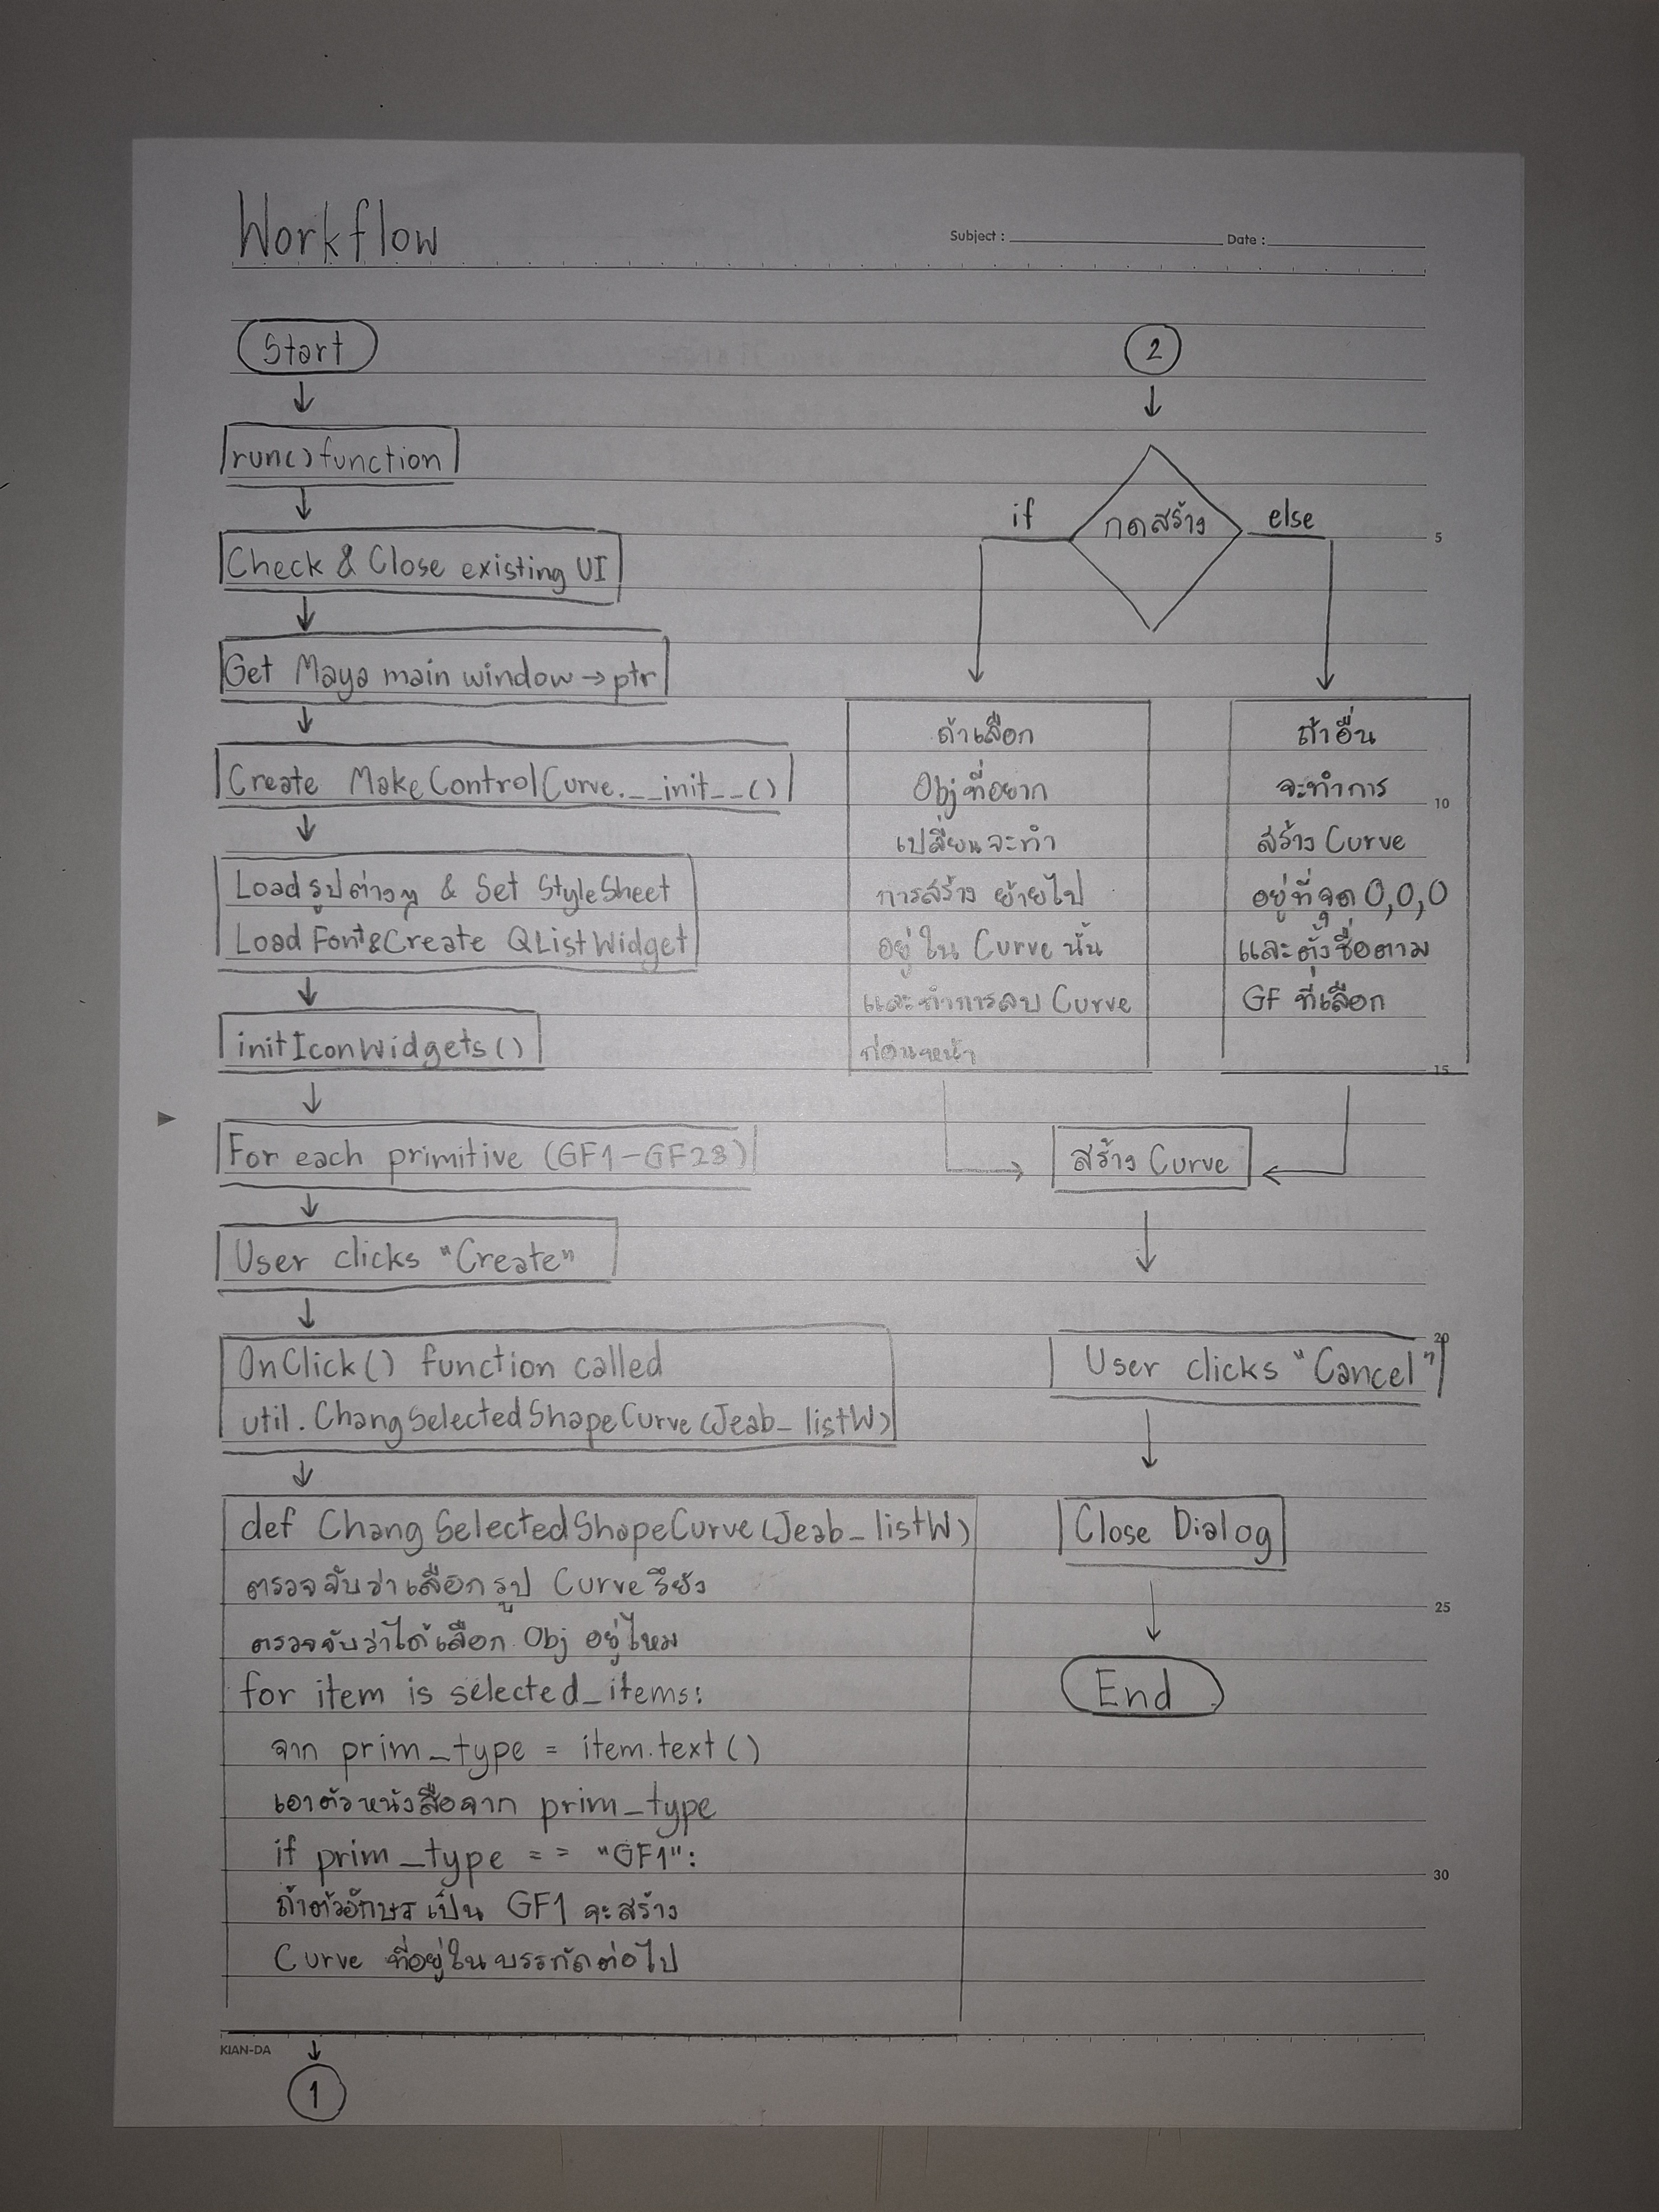 Workflow
Subject :
Date :
Start
run() function
Check & Close existing UI
Get Maya main window → ptr
Create MakeControlCurve.__init__()
Load รูปต่างๆ & Set StyleSheet
Load Font & Create QListWidget
initIconWidgets()
For each primitive (GF1-GF23)
User clicks "Create"
OnClick() function called
util.ChangSelectedShapeCurve(Jeab_listW)
def ChangSelectedShapeCurve(Jeab_listW)
ตรวจจับว่าเลือกรูป Curve รึยัง
ตรวจจับว่าได้เลือก Obj อยู่ไหม
for item is selected_items:
จาก prim_type = item.text()
เอาตัวหนังสือจาก prim_type
if prim_type == "GF1":
ถ้าตัวอักษรเป็น GF1 จะสร้าง
Curve ที่อยู่ในบรรทัดต่อไป
KIAN-DA
1
2
if
กดสร้าง
else
5
ถ้าเลือก
Obj ที่อยาก
เปลี่ยนจะทำ
การสร้าง ย้ายไป
อยู่ใน Curve นั้น
และทำการลบ Curve
ก่อนหน้า
ถ้าอื่น
จะทำการ
10
สร้าง Curve
อยู่ที่จุด 0,0,0
และตั้งชื่อตาม
GF ที่เลือก
15
สร้าง Curve
20
User clicks "Cancel"
Close Dialog
25
End
30